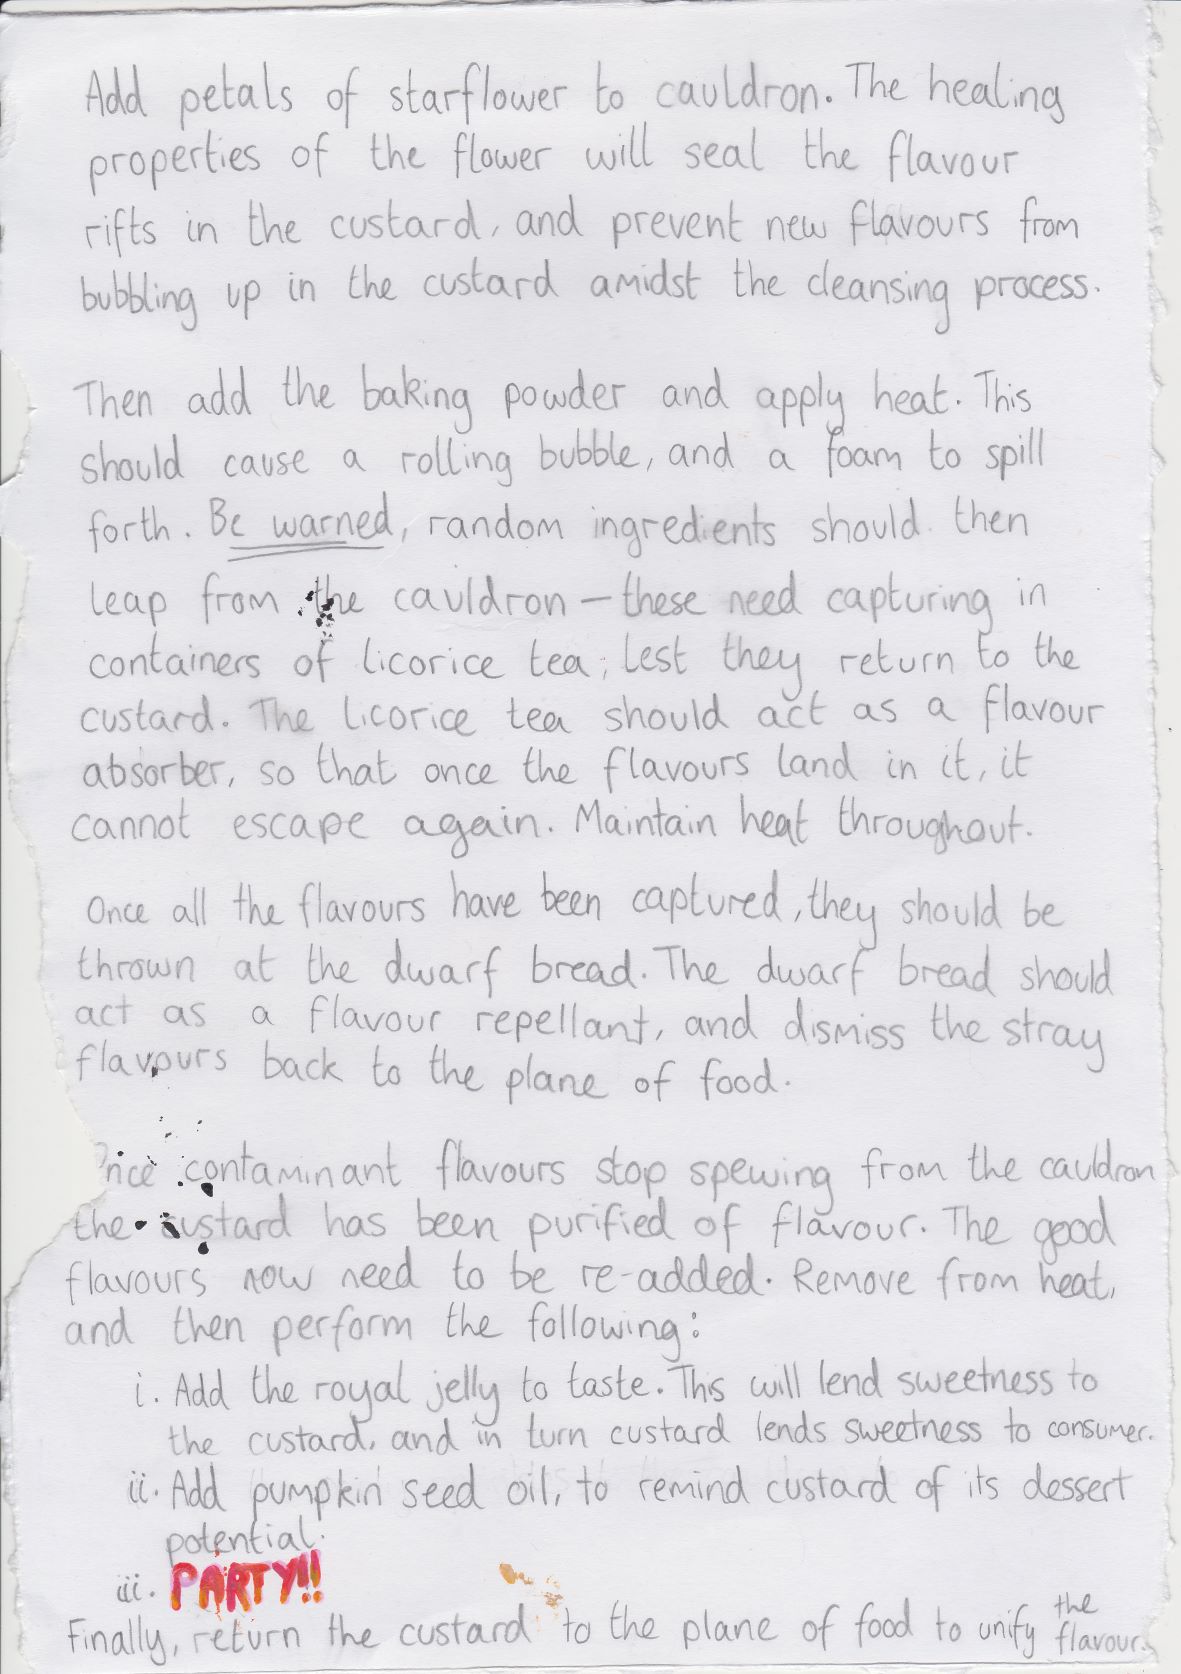 Add petals of starflower to cauldron. The healing
properties of the flower will seal the flavour
rifts in the custard, and prevent new flavours from
bubbling up in the custard amidst the cleansing process.
Then add the baking powder and apply heat. This
should cause a rolling bubble, and a foam to spill
forth. Be warned, random ingredients should then
leap from the cauldron – these need capturing in
containers of licorice tea, lest they return to the
custard. The licorice tea should act as a flavour
absorber, so that once the flavours land in it, it
cannot escape again. Maintain heat throughout.
Once all the flavours have been captured, they should be
thrown at the dwarf bread. The dwarf bread should
act as a flavour repellant, and dismiss the stray
flavours back to the plane of food.
Once contaminant flavours stop spewing from the cauldron
the custard has been purified of flavour. The good
flavours now need to be re-added. Remove from heat,
and then perform the following:
i. Add the royal jelly to taste. This will lend sweetness to
the custard, and in turn custard lends sweetness to consumer.
ii. Add pumpkin seed oil, to remind custard of its dessert
potential.
iii. PARTY!!
Finally, return the custard to the plane of food to unify the flavour.